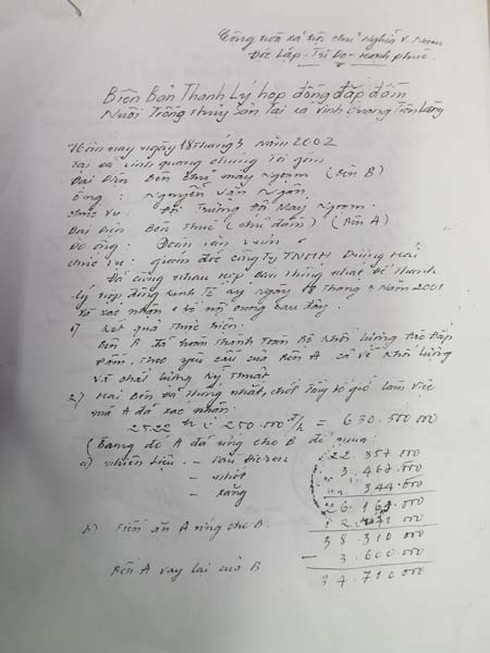 Cộng hòa xã hội chủ nghĩa V. Nam
Độc Lập - Tự Do - Hạnh phúc.
Biên Bản Thanh Lý hợp đồng đắp đầm
Nuôi Trồng thủy sản tại xã Vinh Quang Tiên Lãng
Hôm nay ngày 18 tháng 3 năm 2002
Tại xã Vinh quang chúng tôi gồm
Đại Diện Bên chủ máy Ngoạm (Bên B)
Ông : Nguyễn Văn
Chức vụ : Đội Trưởng Đội Máy Ngoạm.
Đại Diện Bên Thuê (chủ đầm) (Bên A)
Do ông : Đoàn văn vươn
Chức vụ : giám đốc công Ty TNHH Hải
Đã cùng nhau họp bàn thống nhất Để Thanh
lý hợp đồng Kinh Tế ký ngày 18 Tháng 3 năm 2001
và xác nhận 1 số nội dung sau đây.
1) Kết quả thực hiện.
Bên B đã hoàn thành Toàn Bộ Khối lượng Đắp
Đầm, Theo yêu cầu của Bên A cả về Khối lượng
Và chất lượng Kỹ Thuật
2) Hai Bên đã thống nhất, chốt Tổng số giờ làm việc
mà A đã xác nhận.
2522 h : 250.000đ/h = 630.500.000
(Trong đó A đã ứng cho B
a) nhiên liệu. - Dầu Diezen 22.357.000
- nhớt 3.467.000
- xăng 344.000
26.168.000
b) Tiền ăn A ứng cho B. 12.000
38.310.000
Bên A vay lại của B - 3.600.000
34.710.000